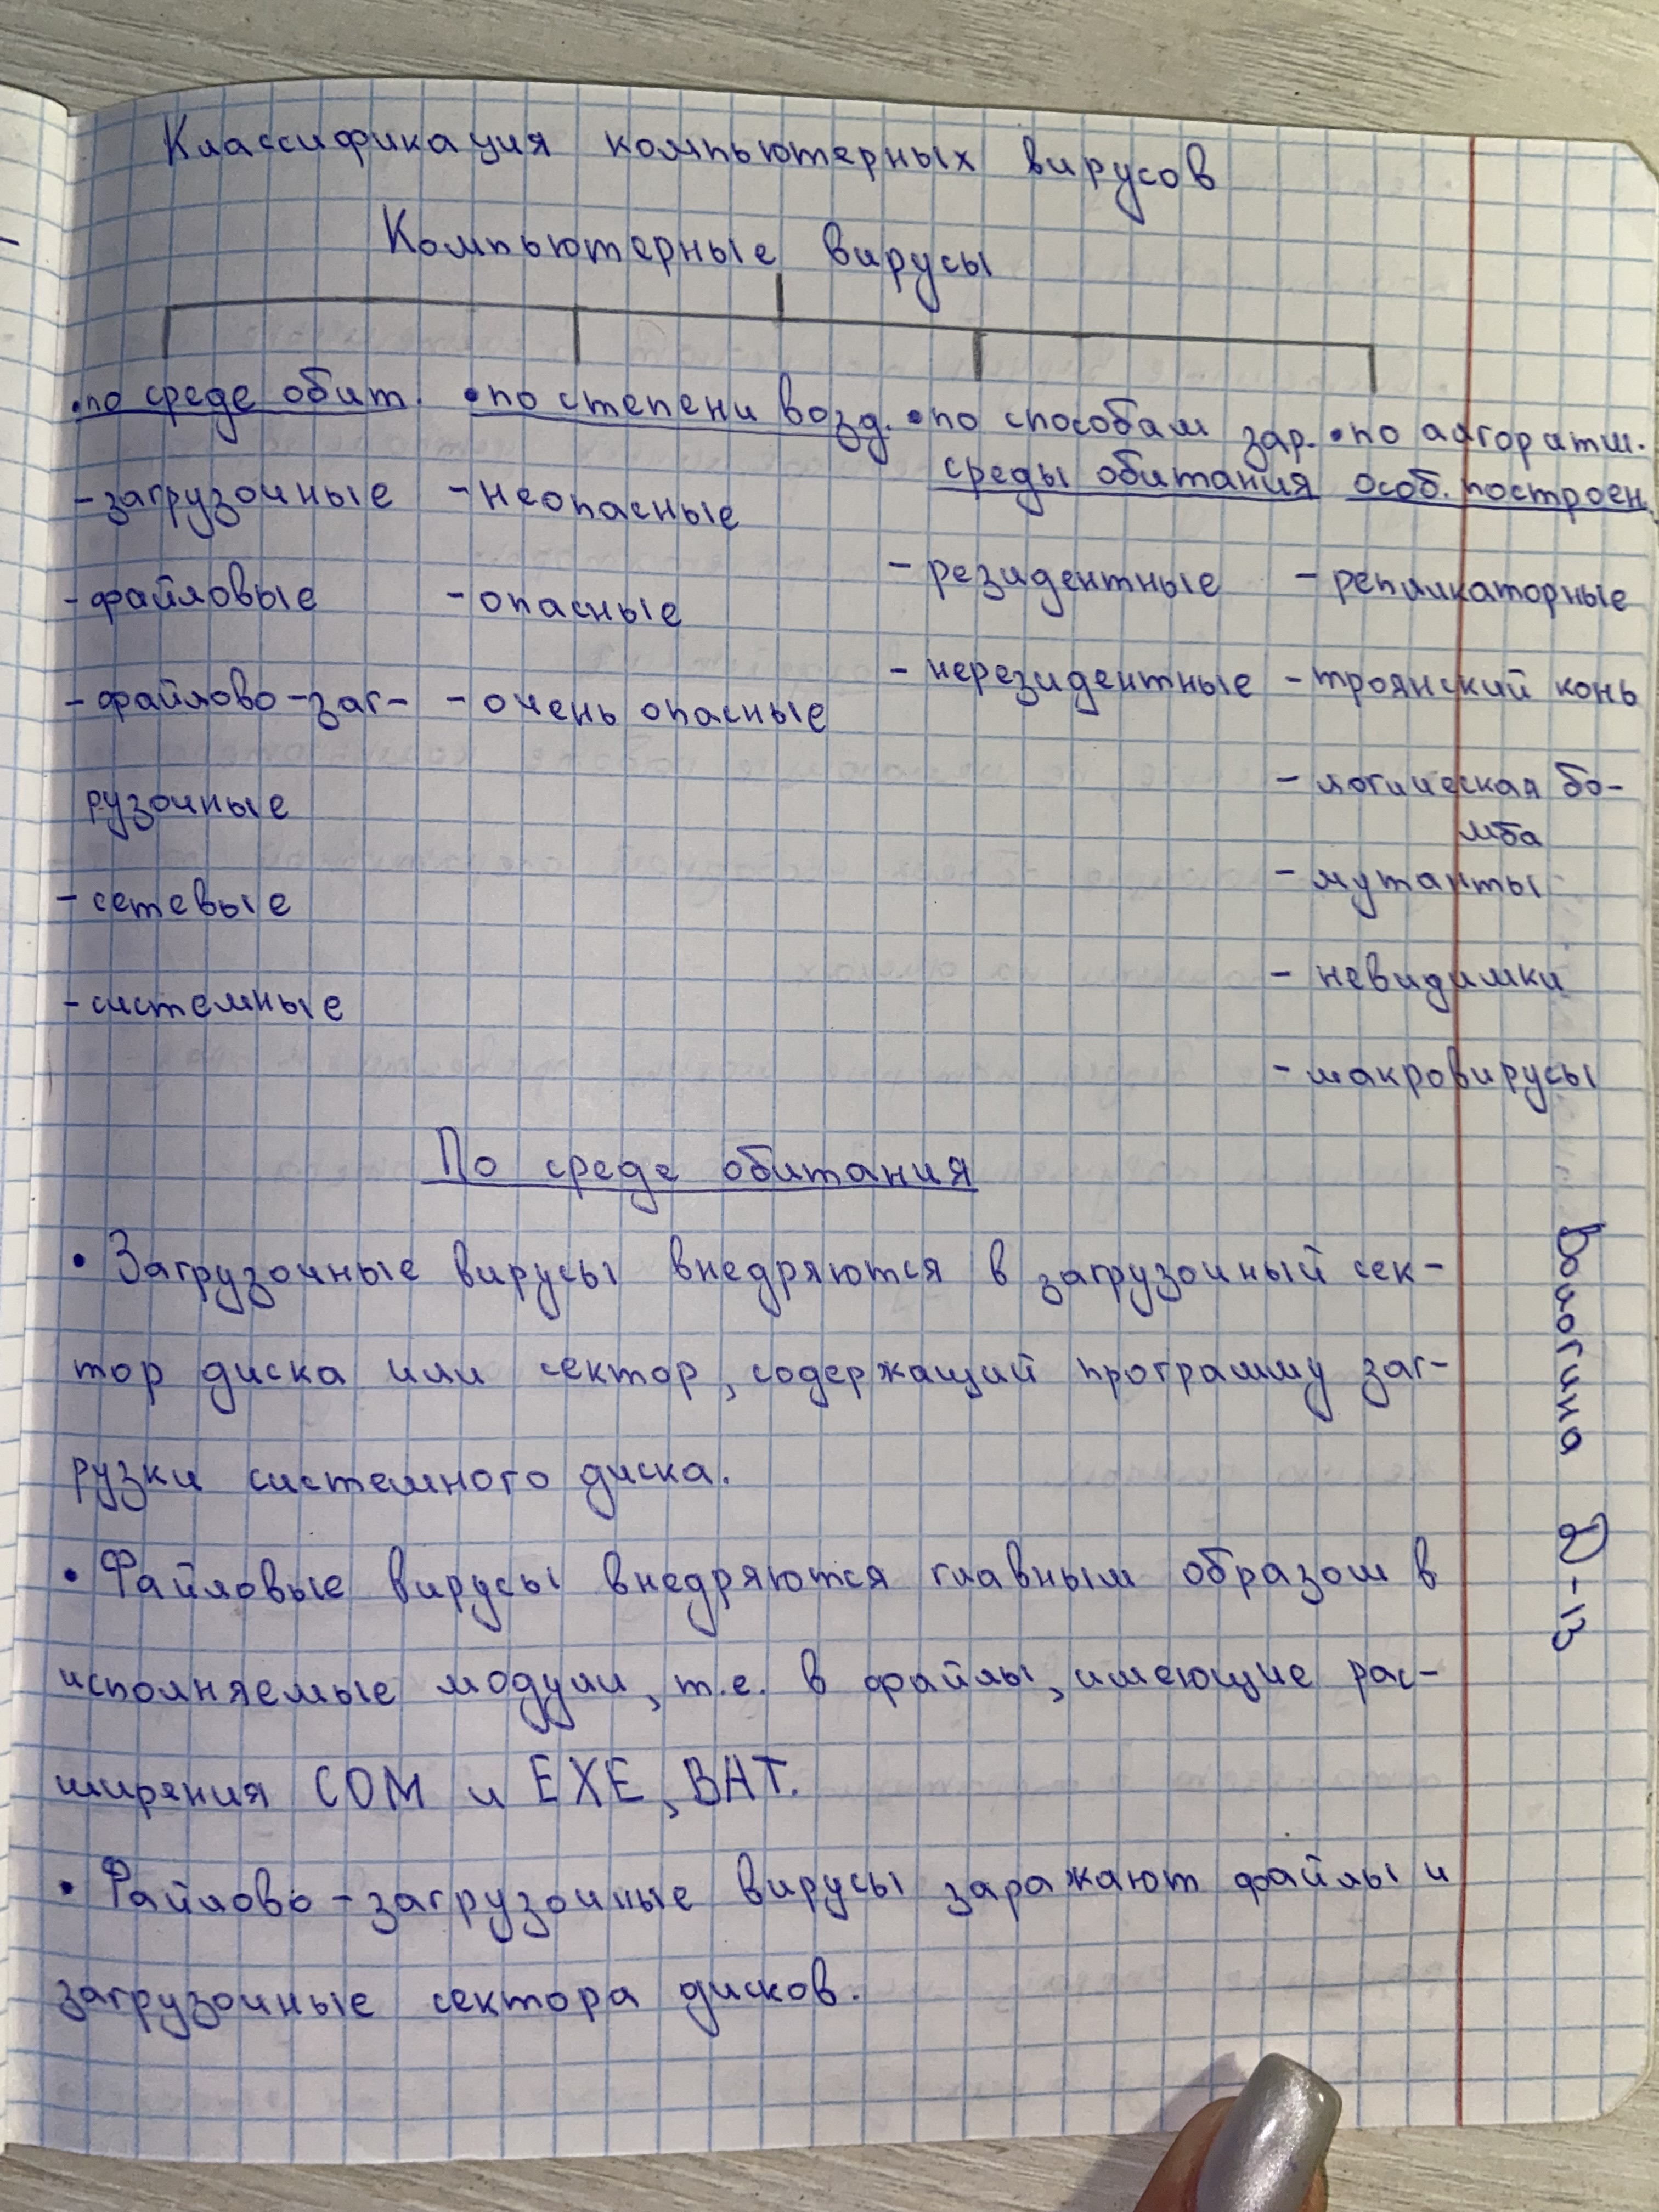 Классификация компьютерных вирусов
Компьютерные вирусы
•по среде обит. •по степени возд. •по способам зар. •по алгоратм.
среды обитания особ. построен.
-загрузочные -неопасные
-резидентные -репликаторные
-файловые -опасные
-нерезидентные -троянский конь
-файлово-заг- -очень опасные
рузочные
-логическая бо-
мба
-сетевые
-мутанты
-системные
-невидимки
-макровирусы
По среде обитания
• Загрузочные вирусы внедряются в загрузочный сек-
тор диска или сектор, содержащий программу заг-
рузки системного диска.
• Файловые вирусы внедряются главным образом в
исполняемые модули, т.е. в файлы, имеющие рас-
ширения COM и EXE, BAT.
• Файлово-загрузочные вирусы заражают файлы и
загрузочные сектора дисков.
Вологина Д-13